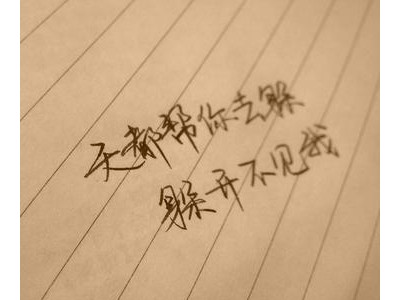 天都帮你去躲
躲开不见我